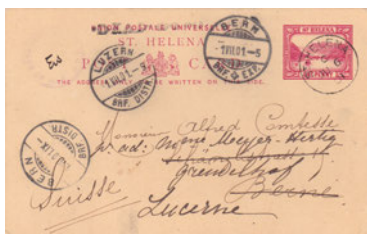 UNION POSTALE UNIVERSELLE
ST. HELENA
POST CARD
THE ADDRESS ONLY TO BE WRITTEN ON THIS SIDE.
BERN
1.VIII.01.-5
BRF. EXP.
LUZERN
BRF. DISTR.
ST. HELENA
BERN
BRF. DISTR.
Monsieur Alfred Comtesse
ad: Mayer-Hertig
Grendelhof
Berne
Lucerne
Suisse